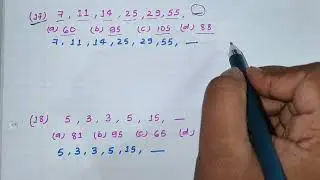 (17) 7, 11, 14, 25, 29, 55,
(a) 60 (b) 95 (c) 105 (d) 88
7, 11, 14, 25, 29, 55, __
(18) 5, 3, 3, 5, 15, __
(a) 81 (b) 95 (c) 65 (d)
5, 3, 3, 5, 15, __